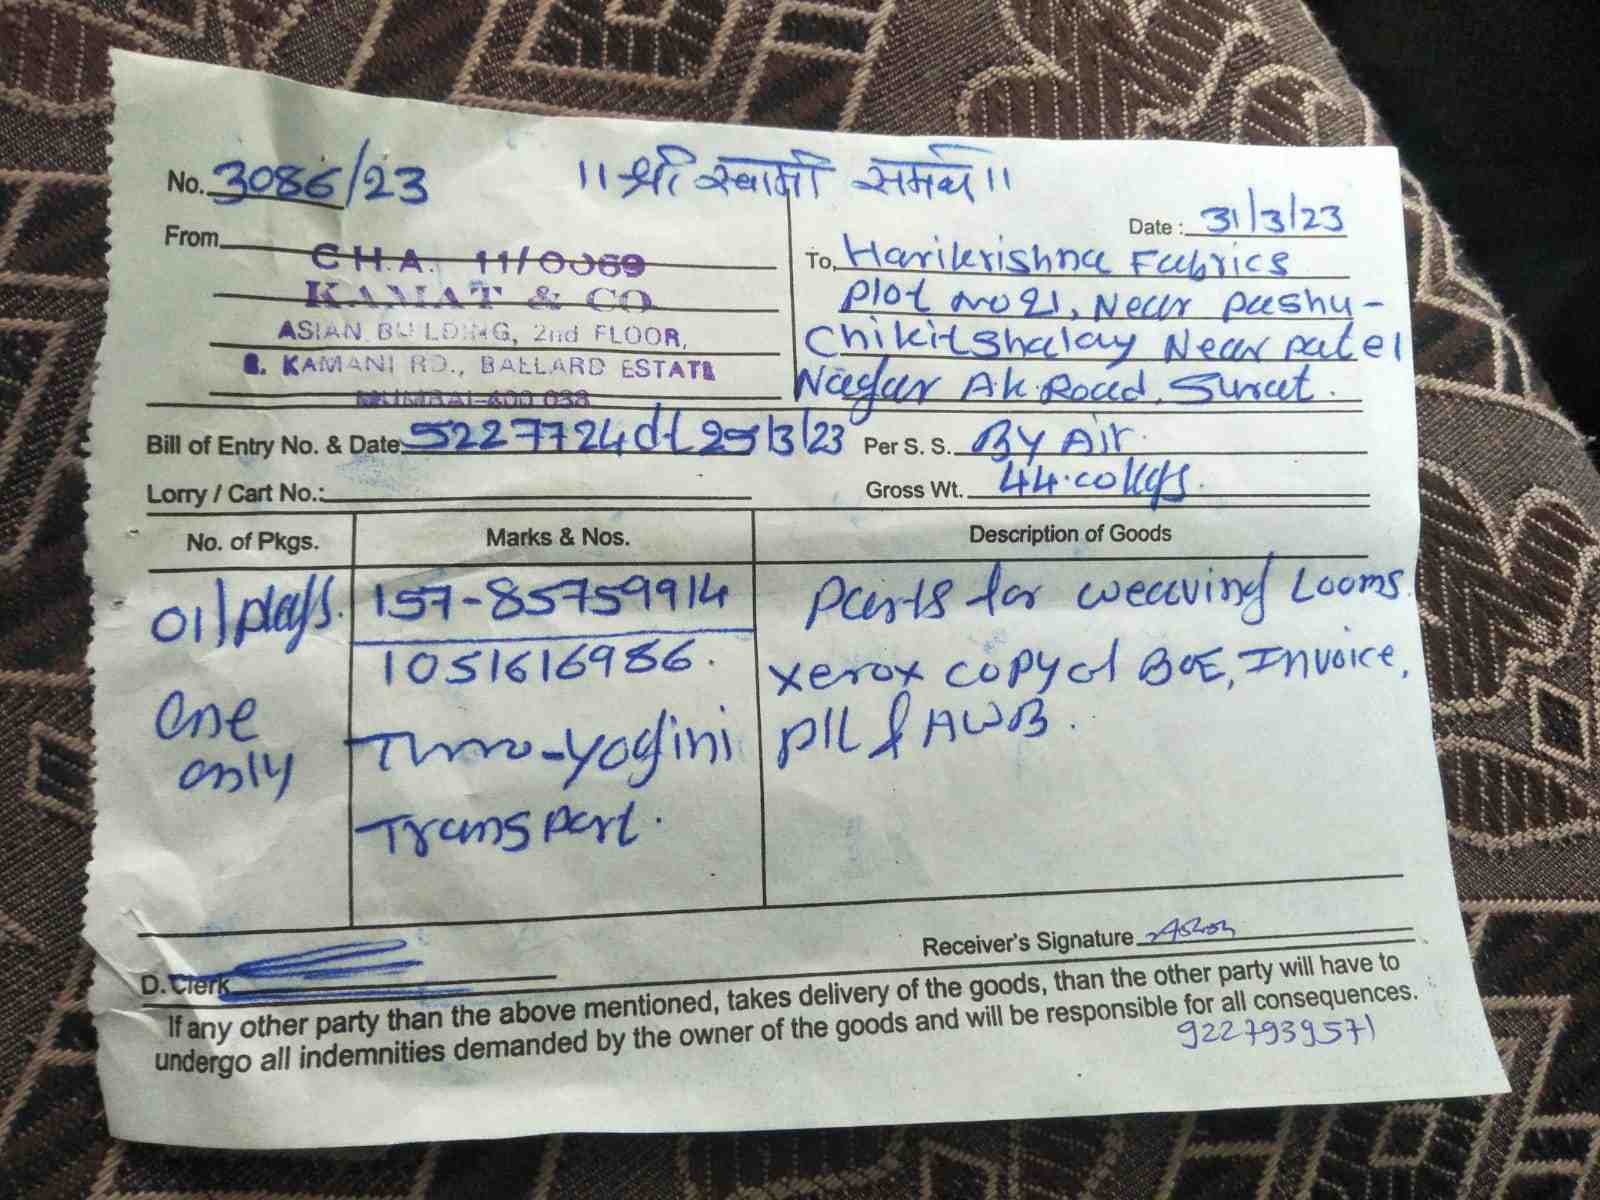 No. 3086/23
॥ श्री स्वामी समर्थ ॥
Date : 31/3/23
From
C.H.A. 11/0069
KAMAT & CO.
ASIAN BUILDING, 2nd FLOOR,
R. KAMANI RD., BALLARD ESTATE
MUMBAI-400 038
To, Harikrishna Fabrics
Plot no 21, Near pashu-
Chikitshalay Near patel
Nagar Ak. Road, Surat.
Bill of Entry No. & Date 5227724 dt 29/3/23 Per S. S. By Air.
Lorry / Cart No.: Gross Wt. 44.00 kgs.
No. of Pkgs. Marks & Nos. Description of Goods
01 pkgs. 157-85759914 Parts for weaving Looms.
1051616986. Xerox copy of BOE, Invoice,
One only Thro-yogini P/L & AWB.
Transport.
Receiver's Signature
D. Clerk
If any other party than the above mentioned, takes delivery of the goods, than the other party will have to
undergo all indemnities demanded by the owner of the goods and will be responsible for all consequences.
9227939571